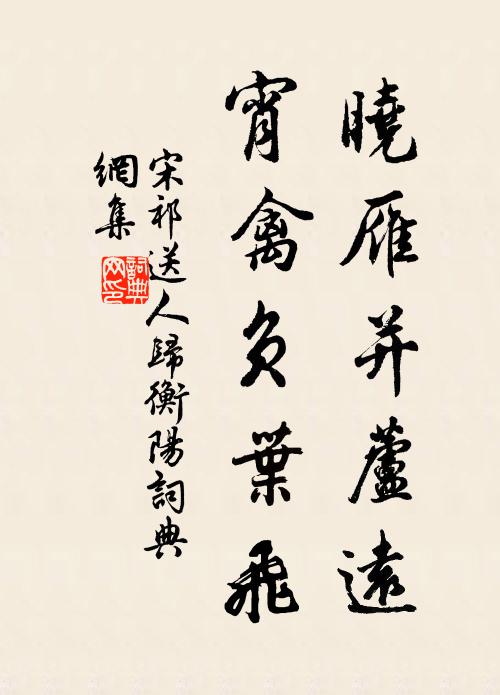 曉雁並蘆遠
宵禽負葉飛
宋祁送人歸衡陽詞典
網集
詞典網印